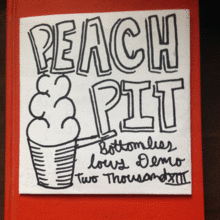 PEACH
PIT
Bottomless
Demo
Two ThousandXIII